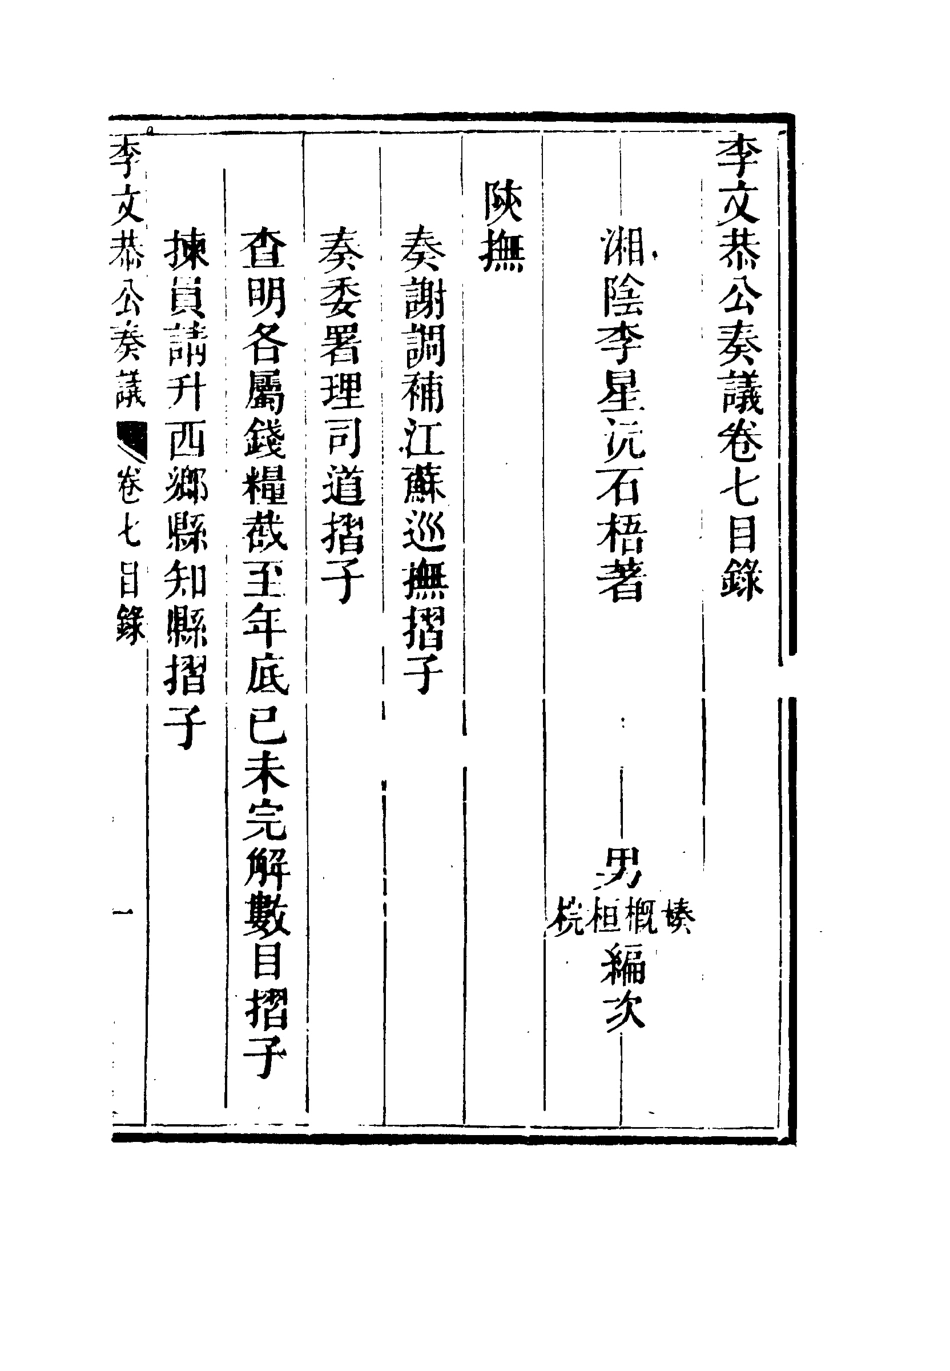 李文恭公奏議卷七目錄
湘陰李星沅石梧著　男榛概桓梡編次
陝撫
奏謝調補江蘇巡撫摺子
奏委署理司道摺子
查明各屬錢糧截至年底已未完解數目摺子
揀員請升西鄉縣知縣摺子
李文恭公奏議　卷七目錄　一